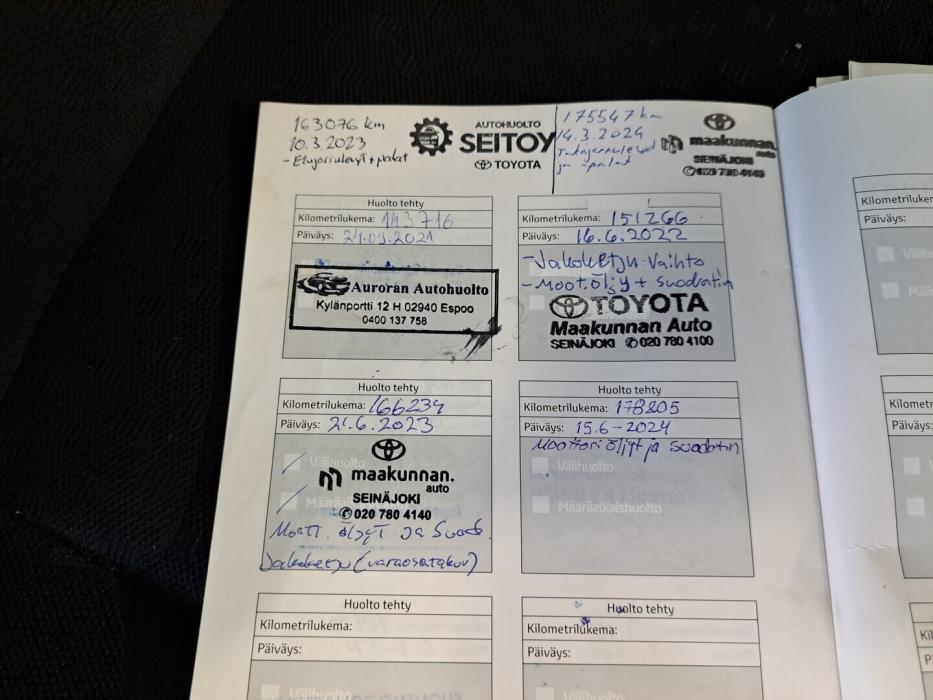 163076 km
10.3.2023
- Etujarrulevyt + palat
AUTOHUOLTO
SEITOY
TOYOTA
175547 km
14.3.2024
Takajarrulevyt
ja -palat
maakunnan.
auto
SEINÄJOKI
Huolto tehty
Kilometrilukema: 143716
Päiväys: 24.09.2021
Auroran Autohuolto
Kylänportti 12 H 02940 Espoo
0400 137 758
Kilometrilukema: 151266
Päiväys: 16.6.2022
- Jakoketju vaihto
- Mootöljy + suodatin
TOYOTA
Maakunnan Auto
SEINÄJOKI 020 780 4100
Huolto tehty
Kilometrilukema: 166234
Päiväys: 21.6.2023
Välihuolto
Määräaikaishuolto
maakunnan.
auto
SEINÄJOKI
020 780 4140
Moott. öljyt ja Suod.
Jakoketju (varaosatakuu)
Huolto tehty
Kilometrilukema: 178805
Päiväys: 15.6-2024
Moottori öljyt ja suodatin
Välihuolto
Määräaikaishuolto
Huolto tehty
Kilometrilukema:
Päiväys:
Välihuolto
Huolto tehty
Kilometrilukema:
Päiväys:
Välihuolto
Kilometriluker
Päiväys:
Välih
Määr
Kilometr
Päiväys:
Kil